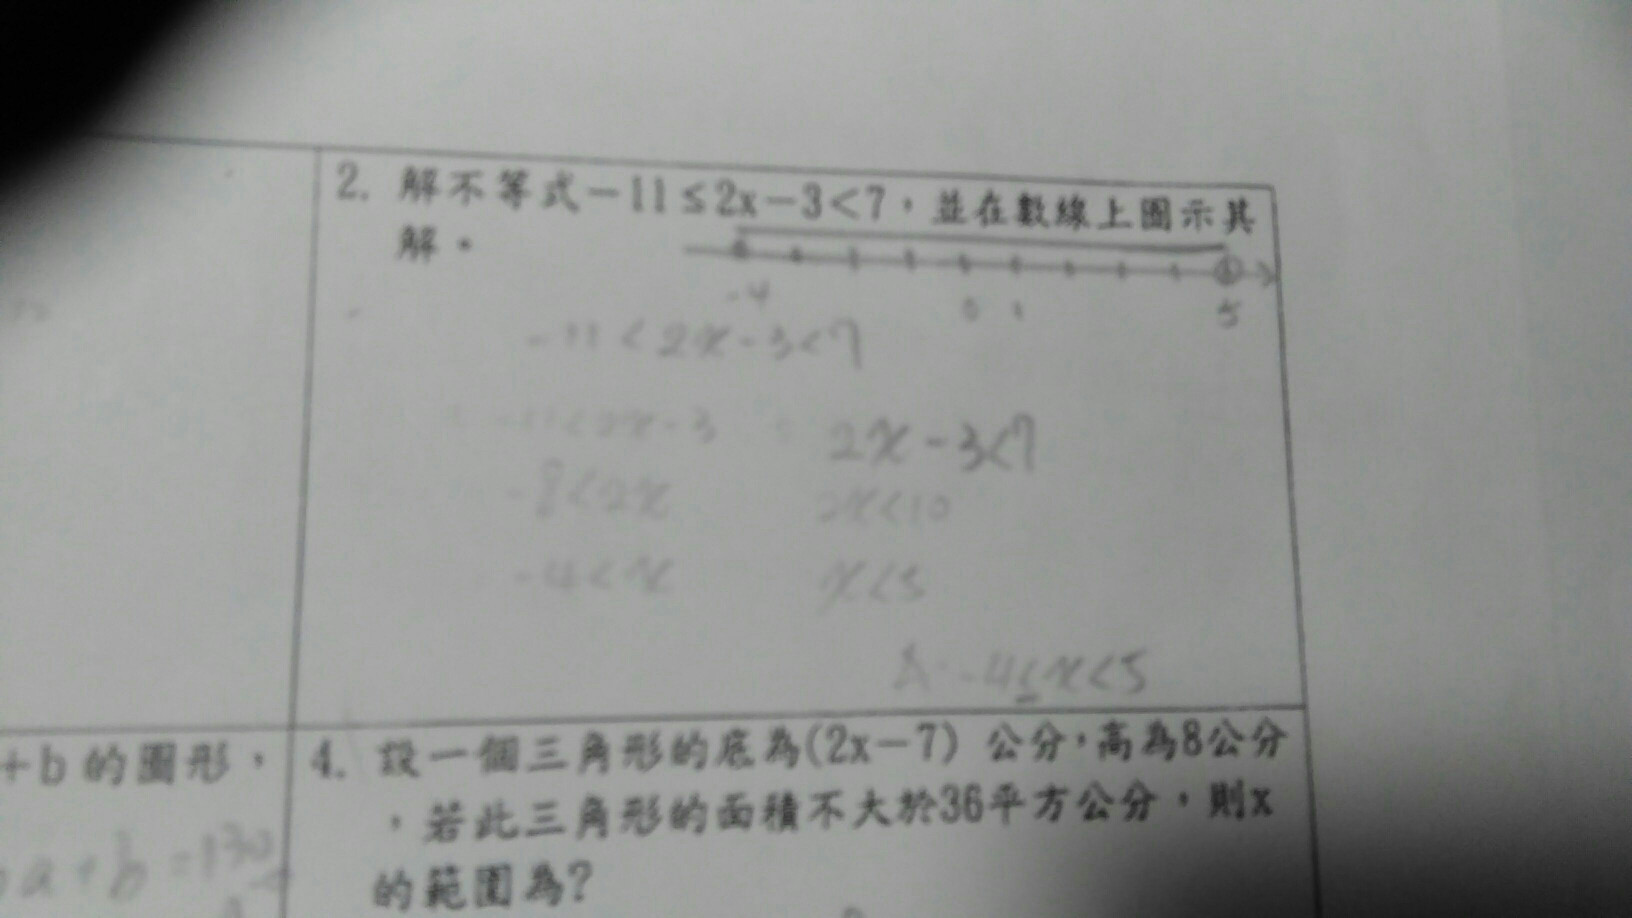 2. 解不等式－11≤2x－3<7，並在數線上圖示其
解。
-4 0 1 5
-11<2x-3<7
-11<2x-3 2x-3<7
-8<2x 2x<10
-4<x x<5
A: -4≤x<5
+b 的圖形，
a+b=130
4. 設一個三角形的底為(2x－7) 公分，高為8公分
，若此三角形的面積不大於36平方公分，則x
的範圍為?